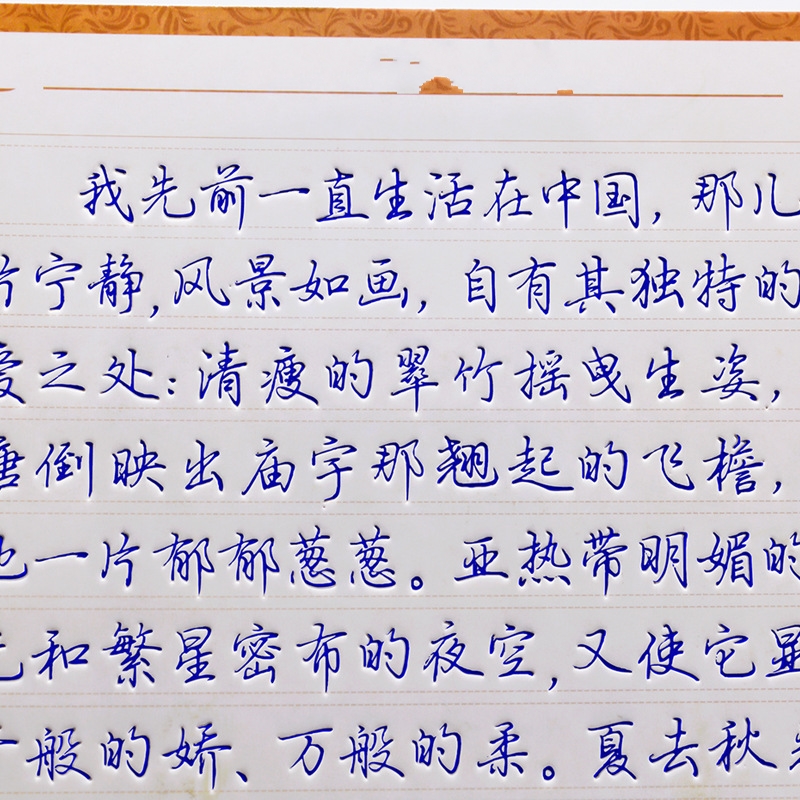 我先前一直生活在中国，那儿
片宁静，风景如画，自有其独特的
爱之处：清瘦的翠竹摇曳生姿，
塘倒映出庙宇那翘起的飞檐，
也一片郁郁葱葱。亚热带明媚的
光和繁星密布的夜空，又使它显
千般的娇、万般的柔。夏去秋来